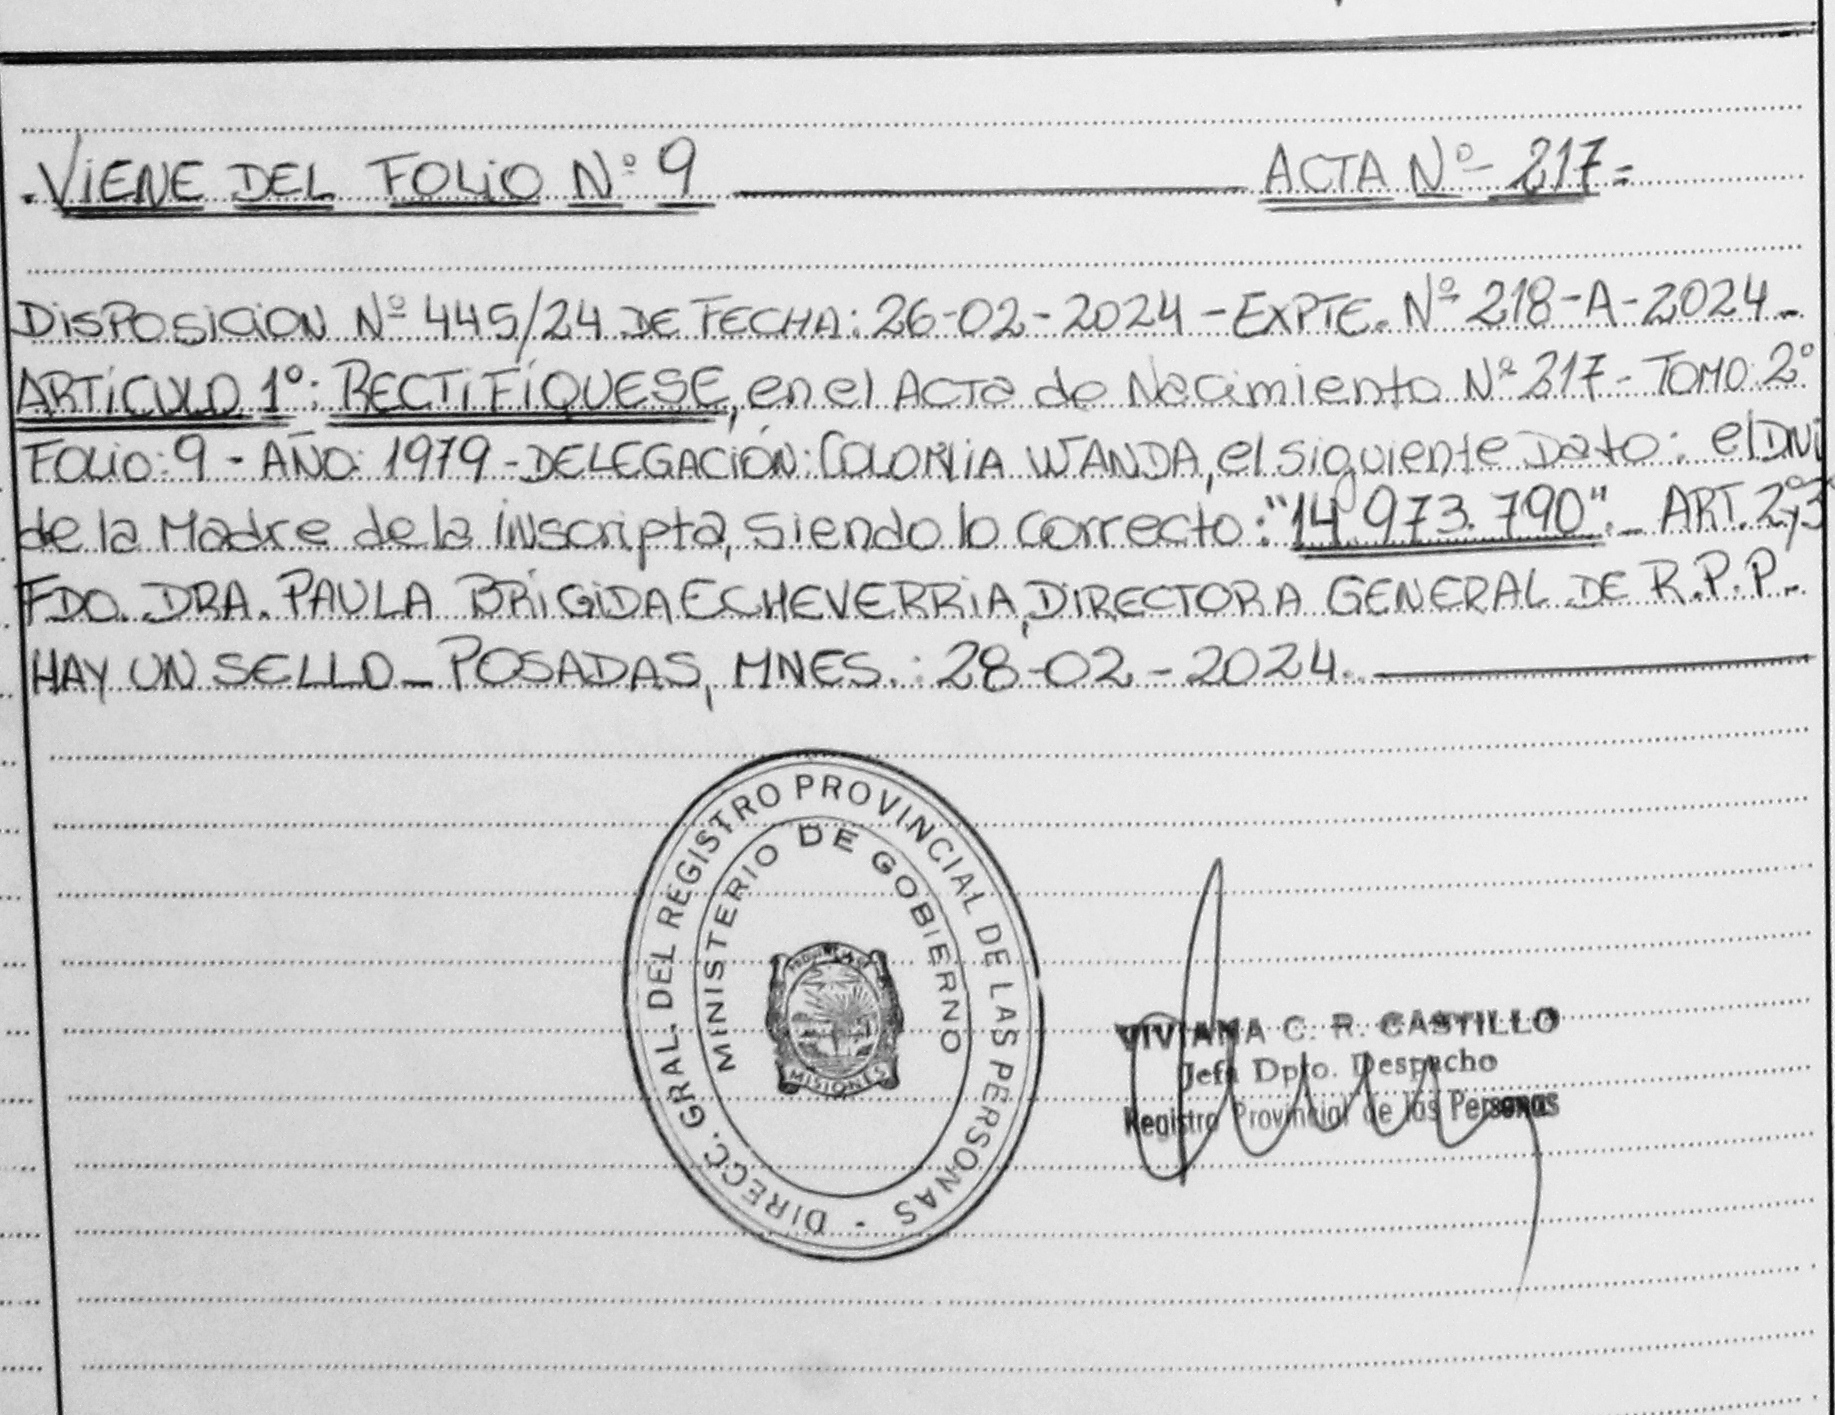 . VIENE DEL FOLIO Nº 9 ACTA Nº 217=
DISPOSICION Nº 445/24 DE FECHA: 26-02-2024 - EXPTE. Nº 218-A-2024-
ARTÍCULO 1º: RECTIFÍQUESE, en el ACTA de Nacimiento Nº 217 - TOMO: 2º
FOLIO: 9 - AÑO: 1979 - DELEGACIÓN: COLONIA WANDA, el siguiente Dato: el DNI
de la Madre de la inscripta, siendo lo correcto: "14.973.790". - ART. 2y3
FDO. DRA. PAULA BRÍGIDA ECHEVERRIA, DIRECTORA GENERAL DE R.P.P.-
HAY UN SELLO - POSADAS, MNES.: 28-02-2024.
DIRECC. GRAL. DEL REGISTRO PROVINCIAL DE LAS PERSONAS -
MINISTERIO DE GOBIERNO
PROVINCIA DE
MISIONES
VIVIANA C. R. CASTILLO
Jefa Dpto. Despacho
Registro Provincial de las Personas